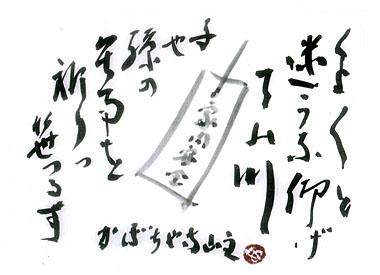 くよくよと
迷うな仰げ
天の川
家内安全
子や
孫の
無事を
祈りつ
笹つるす
かぼちゃ寺山主